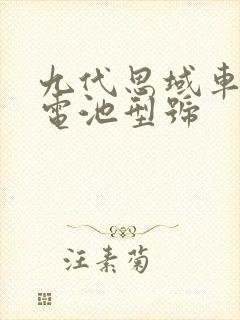 九代思域車
電池型號
汪素菊